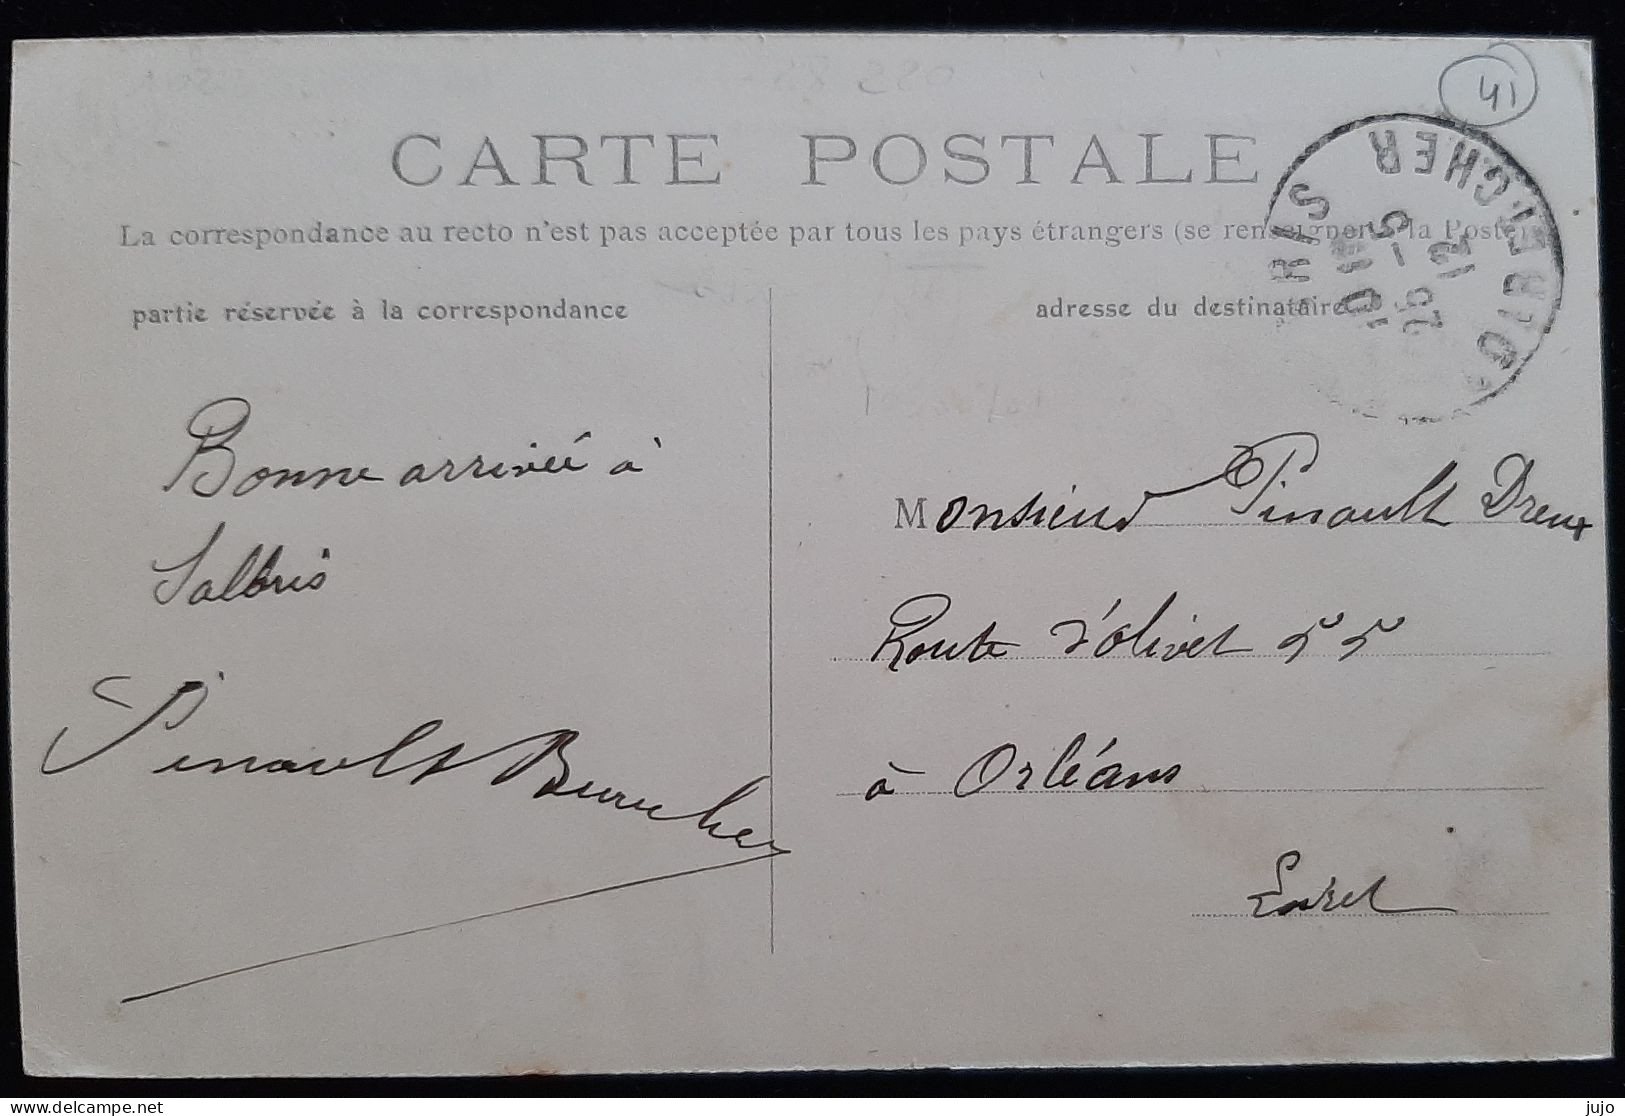 41
CARTE POSTALE
La correspondance au recto n'est pas acceptée par tous les pays étrangers (se renseigner à la Poste)
partie réservée à la correspondance
adresse du destinataire
RIS
LOIR ET CHER
Bonne arrivée à
Salbris
Pinault
Monsieur Pinault Dreux
Route d'Olivet 55
à Orléans
Loiret
delcampe.net
jujo